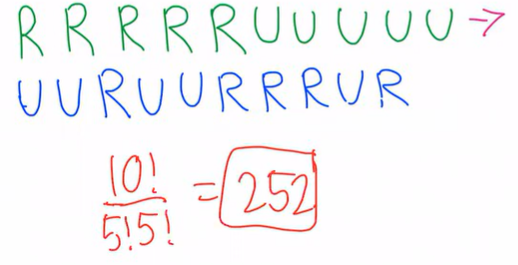 R R R R R U U U U U →
U U R U U R R R U R
10!
5!5!
= 252